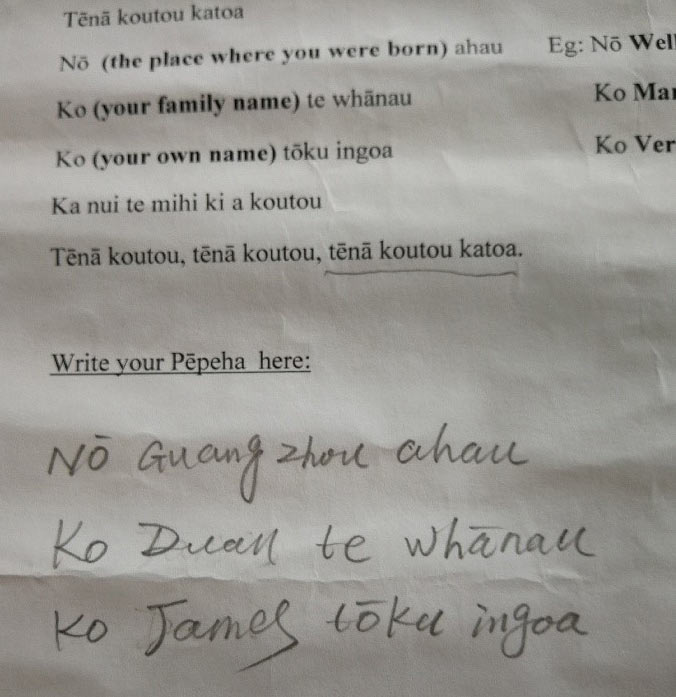 Tēnā koutou katoa
Nō (the place where you were born) ahau Eg: Nō Well
Ko (your family name) te whānau Ko Mar
Ko (your own name) tōku ingoa Ko Ver
Ka nui te mihi ki a koutou
Tēnā koutou, tēnā koutou, tēnā koutou katoa.
Write your Pēpeha here:
Nō Guangzhou ahau
Ko Duan te whānau
Ko James tōku ingoa